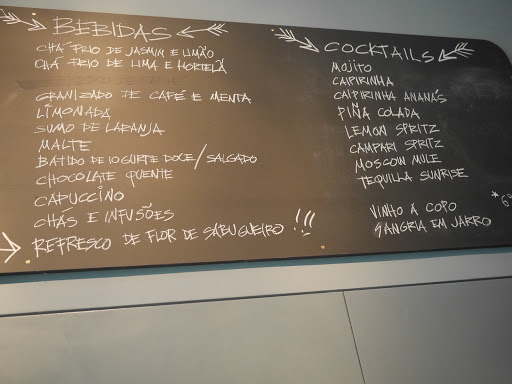 BEBIDAS
CHÁ FRIO DE JASMIM E LIMÃO
CHÁ FRIO DE LIMA E HORTELÃ
GRANIZADO DE CAFÉ E MENTA
LIMONADA
SUMO DE LARANJA
MALTE
BATIDO DE IOGURTE DOCE/SALGADO
CHOCOLATE QUENTE
CAPUCCINO
CHÁS E INFUSÕES
REFRESCO DE FLOR DE SABUGUEIRO !!!
COCKTAILS
MOJITO
CAIPIRINHA
CAIPIRINHA ANANÁS
PIÑA COLADA
LEMON SPRITZ
CAMPARI SPRITZ
MOSCOW MULE
TEQUILLA SUNRISE
VINHO A COPO
SANGRIA EM JARRO